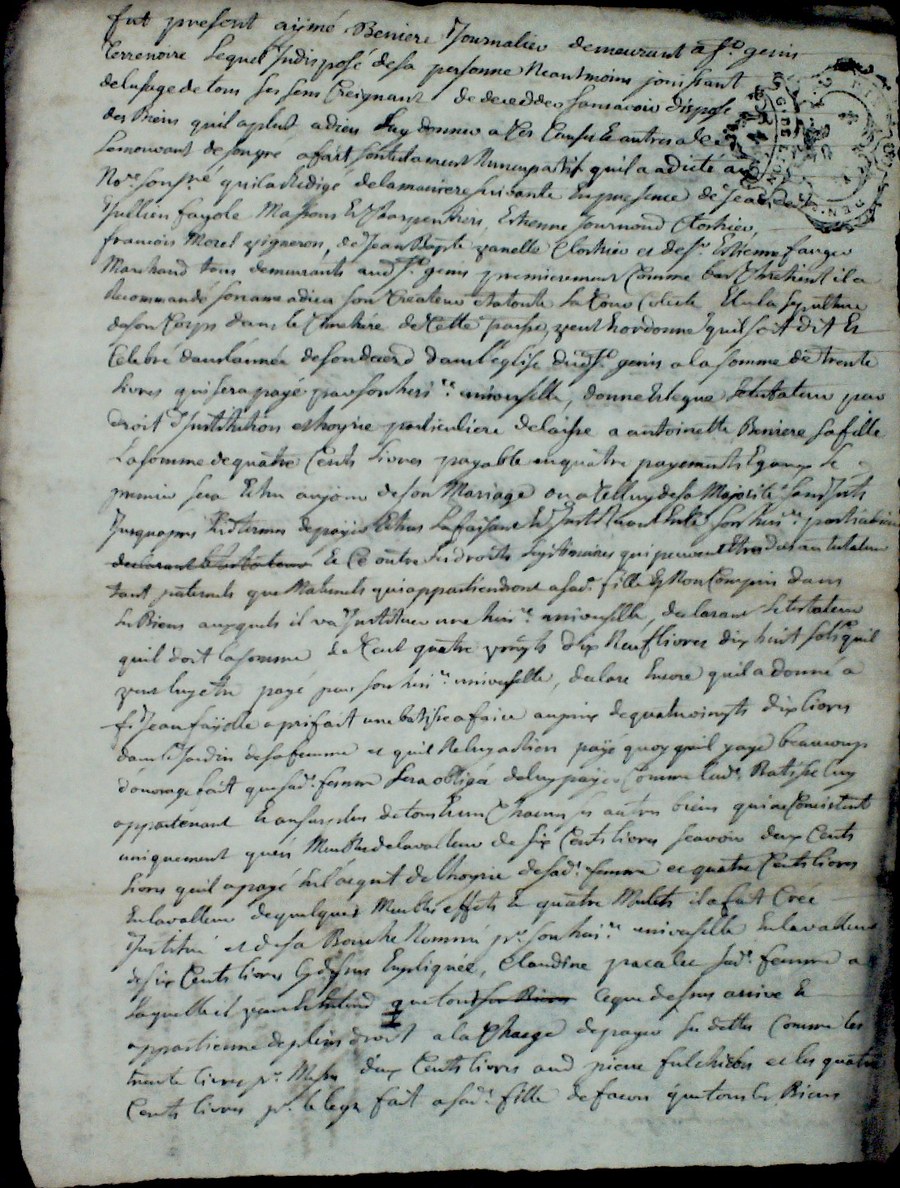 fut present aymé Beniere Journalier demeurant a St genis
terrenoire Lequel Indisposé de sa personne Neantmoins jouissant
de lusage de tous ses sens Creignant de decedder sans avoir disposé
des Biens quil a plut a dieu Luy donner a Ces Causes Et autres a Ce
Le mouvant de son gré a fait son testament Nuncupatif quil a dicté au
Nore. sousné quil a Redigé de la maniere suivante En presence de Jean de
Jullien fayole Massons Et Charpentiers, Estienne Journoud Clostrier,
francois Morel vigneron, de Jean Bapte vanelle Clostrier et de sr. Estienne farger
Marchand tous demeurants aud St. genis premierement Comme bon Chretient il a
Recommandé son ame a dieu son Createur Et a toute La Cour Celeste Elu la sepulture
de son Corps dans le Cimetiere de Cette paroisse, veut Et ordonne quil soit dit Et
Celebré dans lannée de son deced dans l'eglise dud St. genis a la somme de trente
Livres qui sera payé par son heri.re universelle, donne Et legue Le testateur par
droit d'Institution et hoyrie particuliere delaisse a antoinette Beniere sa fille
La somme de quatre Cents Livres payable en quatre payements Egaux Le
premier sera Echu au jour de son Mariage ou a Celluy de sa Majorité sans Intts
Jusquapres Les termes de payer Echus La faisant Et Instituant En Ce son heri.re particuliere
declarant le testateur Et Ce outre Les droits Legitimaires qui peuvent Etre dus au testateur
tant paternels que Maternels qui appartiendront a sad. fille Et Non Compris dans
Les Biens auxquels il va Instituer une heri.re universelle, declarant Le testateur
quil doit la somme de Cent quatre vingts dix Neuf livres dix huit sols quil
veut luy etre payé par son heri.re universelle, declare Encore quil a donné a
sr. Jean fayolle a prifait une batisse a faire au prix de quatrevingts dix livres
dans le Jardin de sa femme et quil Reluy a bien payé quoy quil y aye beaucoup
d'ouvrage fait que sad. femme sera obligé de luy payer Comme lad. Batisse luy
appartenant Et au surplus de tous Et un Chacuns ses autres biens qui ne Consistent
uniquement qu'en Meubles de la valleur de six Cents livres scavoir deux Cents
Livres quil a payé sur l'acquit de lhoyrie de sad. femme et quatre Cents livres
En la valleur de quelques Meubles effets Et quatre Mulets il a fait Créé
Institué et de sa Bouche Nommé pr. son heri.re universelle En la valleur
de six Cents livres Cy dessus Expliquée, Claudine pacalet sad. femme a
Laquelle il veut Et Entend que tous ses Biens Ce que dessus arrive Et
appartienne de plein droit a la Charge de payer Les dettes Comme les
trente livres pr. Messes deux Cents livres aud pierre fulchiron et les quatre
Cents livres pr. le legs fait a sad. fille de facon que tous les Biens